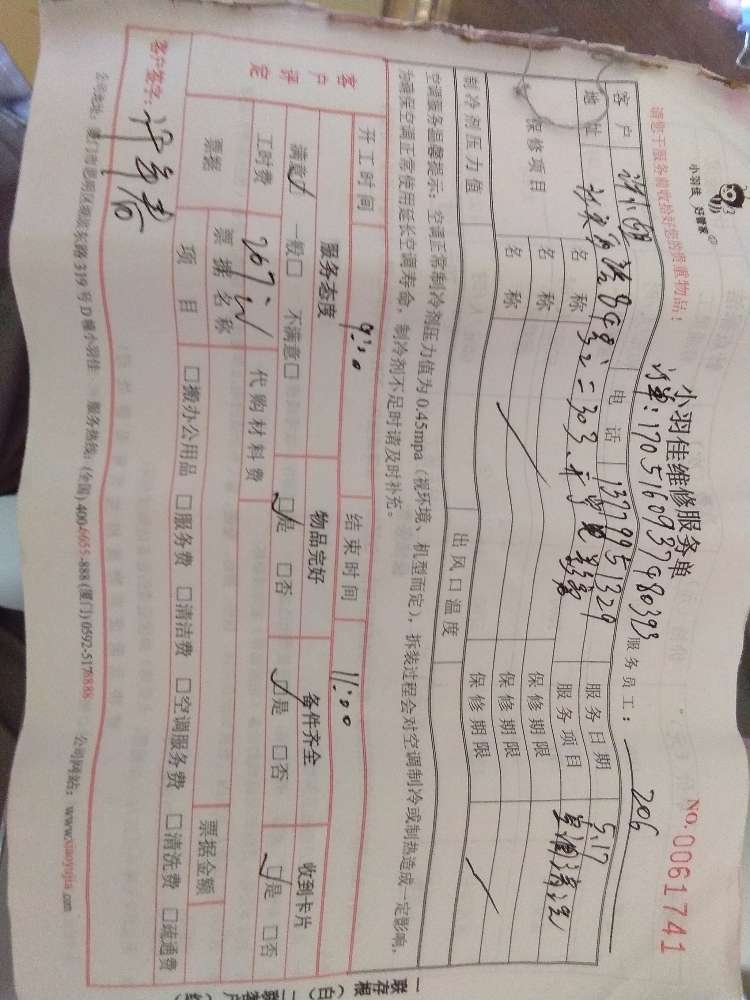 小羽佳 好管家
请您于服务前收拾好您的贵重物品！
小羽佳维修服务单
NO.0061741
订单：1705160937980393
服务员工： 206
客户 电话 13779951329 服务日期 5.17
地址 服务项目 空调清洗
保修项目 名称 保修期限
名称 保修期限
名称 保修期限
制冷剂压力值 出风口温度
空调服务温馨提示：空调正常制冷剂压力值为0.45mpa（视环境、机型而定），拆装过程会对空调制冷或制热造成一定影响，
为确保空调正常使用延长空调寿命，制冷剂不足时请及时补充。
开工时间 9:00 结束时间 11:00
客户评定 服务态度 物品完好 备件齐全 收到卡片
满意☑ 一般□ 不满意□ ☑是 □否 ☑是 □否 ☑是 □否
工时费 267 代购材料费
票据 票据名称 票据金额
项目 □搬办公用品 □服务费 □清洁费 □空调服务费 □清洗费 □疏通费
客户签字：
公司地址：厦门市思明区 东路319号D幢小羽佳 服务热线：(全国) 400-6655-888 (厦门) 0592-5178888 公司网站：www.xiaoyujia.com
一联存根（白）二联客户（红）